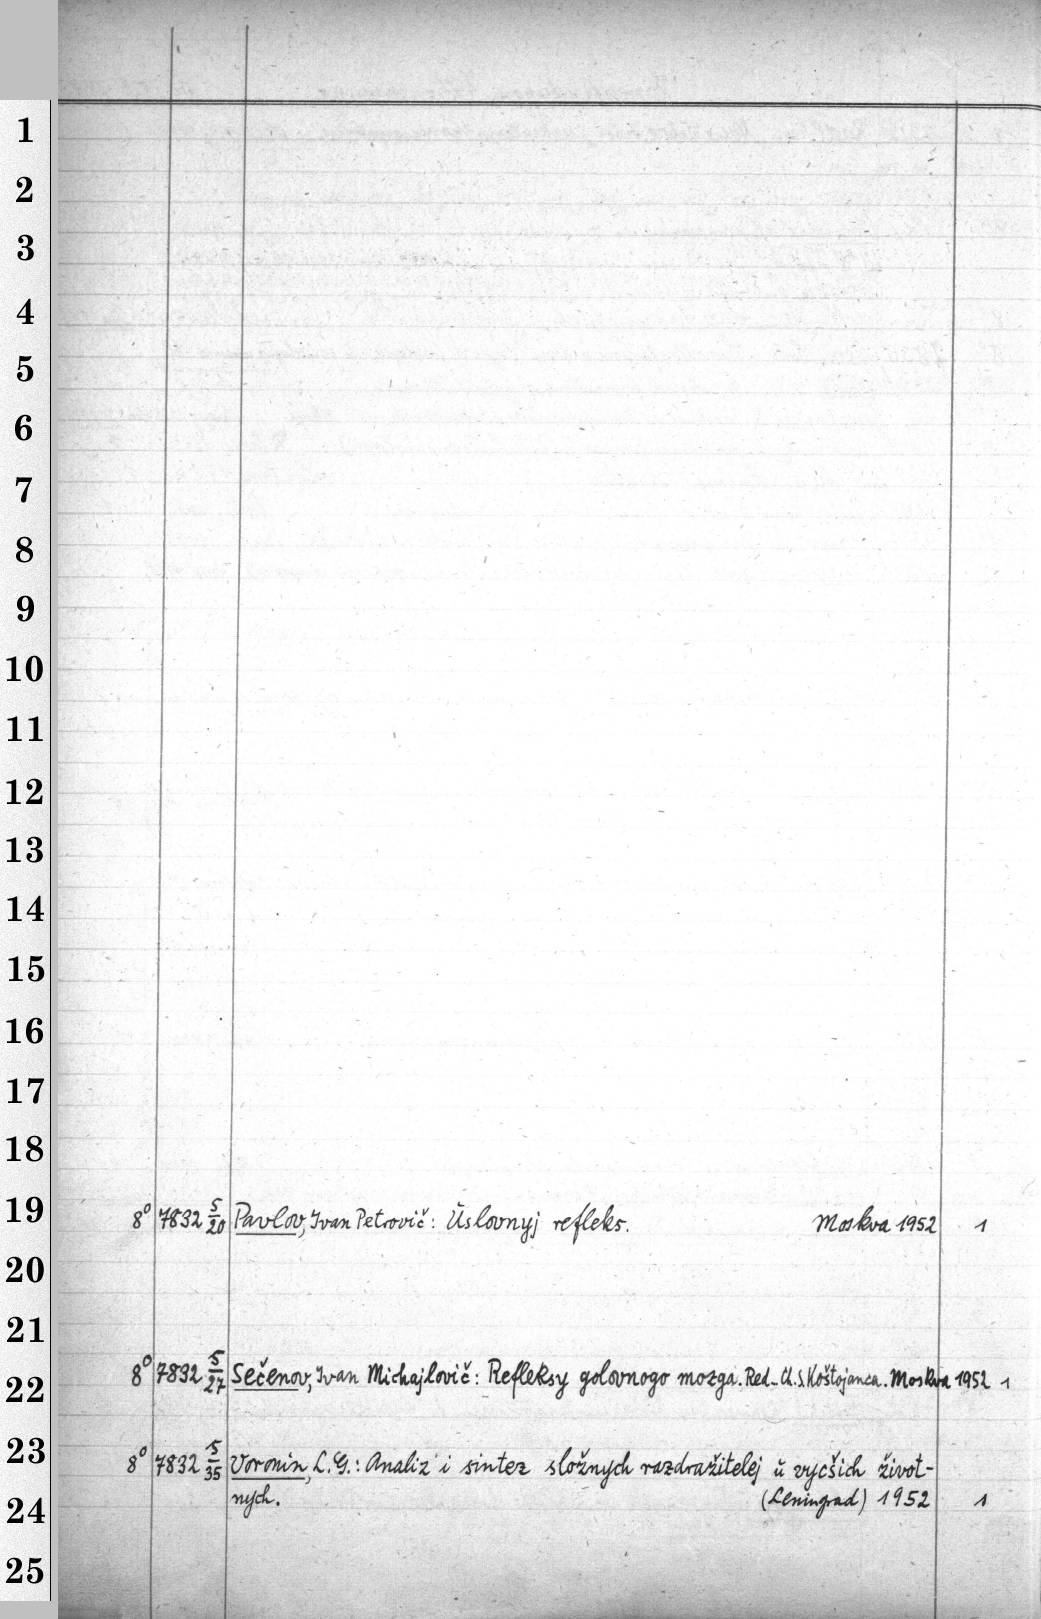 1
2
3
4
5
6
7
8
9
10
11
12
13
14
15
16
17
18
19
8⁰ 7832 5/20 Pavlov, Ivan Petrovič: Ŭslovnyj refleks. Moskva 1952 1
20
21
8⁰ 7832 5/27 Sečenov, Ivan Michajlovič: Refleksy golovnogo mozga. Red. Ch.S. Koštojanca. Moskva 1952 1
22
23
8⁰ 7832 5/35 Voronin, L.G.: Analiz i sintez složnych razdražitelej ŭ vycšich život-
nych. (Leningrad) 1952 1
24
25